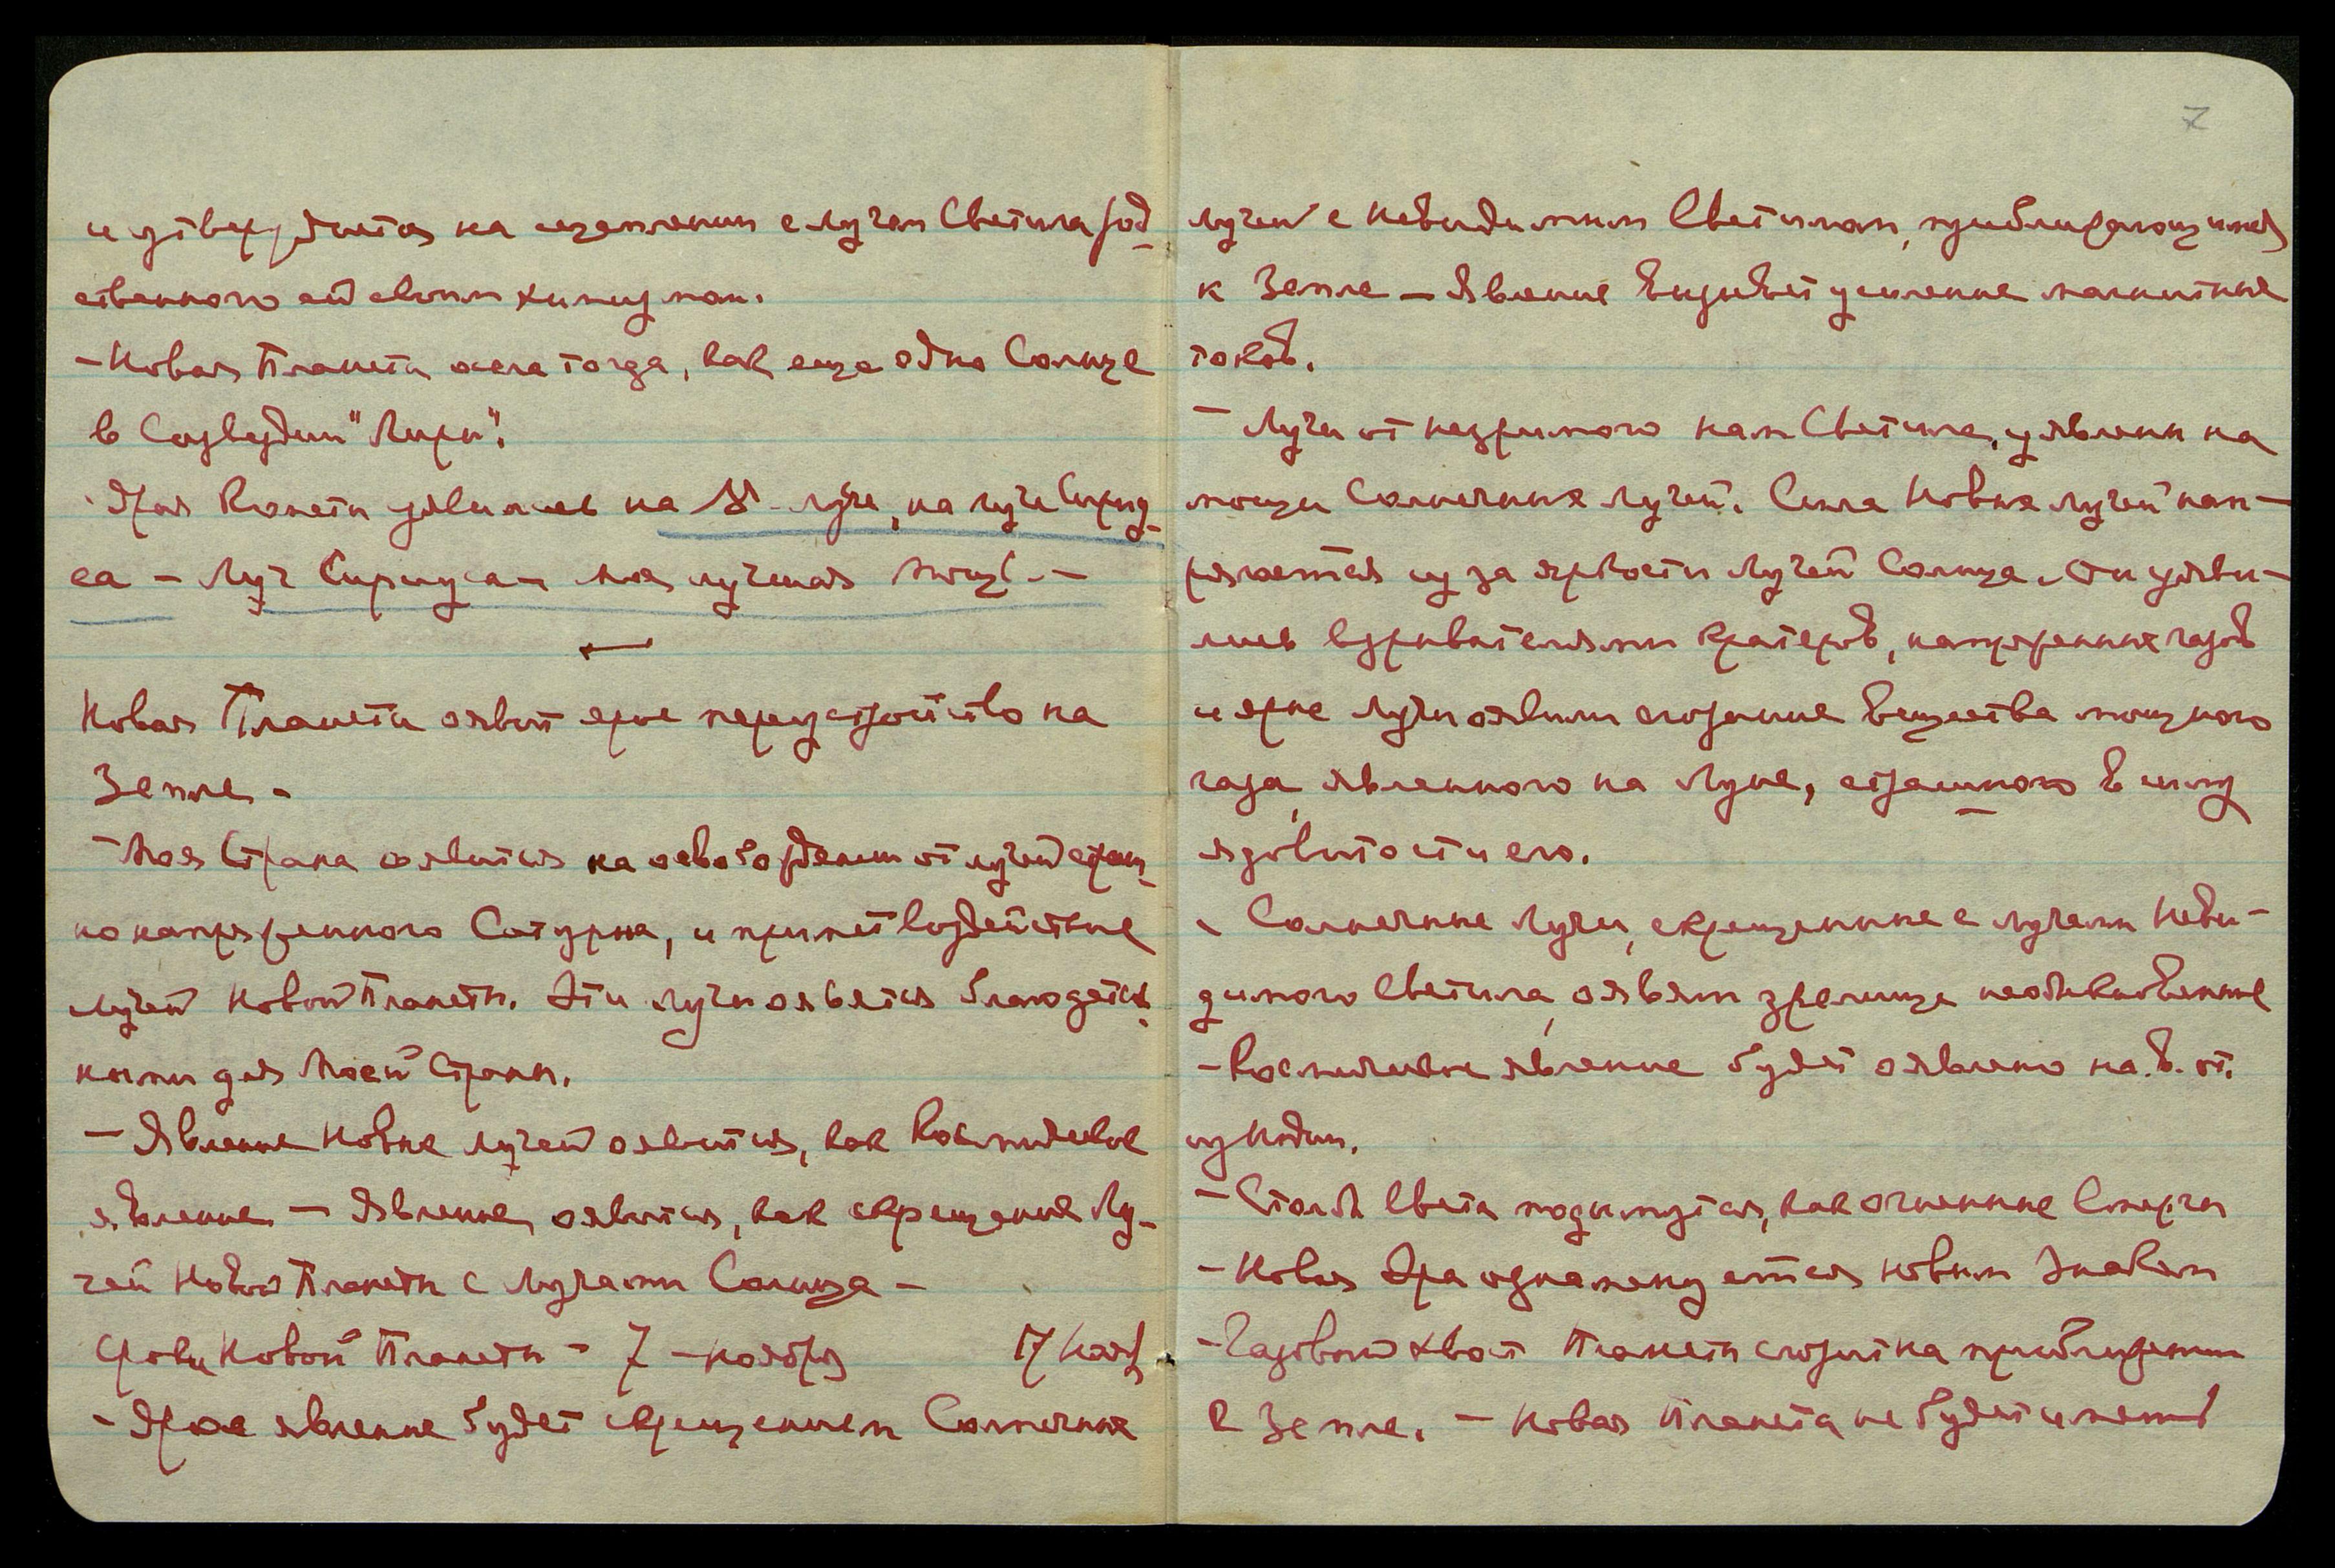 и утверждается на сцеплении с лучом Светила род-
ственного ей своим химизмом.
– Новая Планета тогда, как еще одно Солнце
в Созвездии "Лиры".
Ярая Планета уявилась на луче, на луче Сириу-
са – Луч Сириуса – моя лучшая мощь. –
Новая Планета оявит ярое переустройство на
Земле –
– Моя Страна оявится на освобождении от лучей страш-
но напряженного Сатурна, и примет воздействие
лучей Новой Планеты. Эти лучи оявятся благодат-
ными для Моей Страны.
– Явление Новых лучей оявится, как Космическое
явление – Явление оявится, как скрещение Лу-
чей Новой Планеты с Лучами Солнца –
Сроки Новой Планеты – 7 – ноября 17 Нояб
– Ярое явление будет скрещением Солнечных
7
лучей с Невидимым Светилом, приближающимся
к Земле – Явление вызовет усиление магнитных
токов.
– Лучи от незримого нам Светила, уявлены на
мощи Солнечных лучей. Сила Новых лучей нап-
ряжается из за ярости Лучей Солнца. Они уяви-
лись взрывателями кратеров, напряженных газов
и ярые Лучи оявили сгущение вещества мощного
газа, явленного на Луне, страшного в силу
ядовитости его.
– Солнечные Лучи, скрещенные с лучами Неви-
димого Светила, оявят зрелище необыкновенное
– Космическое явление будет оявлено на. в. от.
из Индии.
– Столбы Света подымутся, как огненные Смерчи
– Новая Эра ознаменуется новым Знаком
– Газовый хвост Планеты сгорит на приближении
к Земле. – Новая Планета не будет иметь